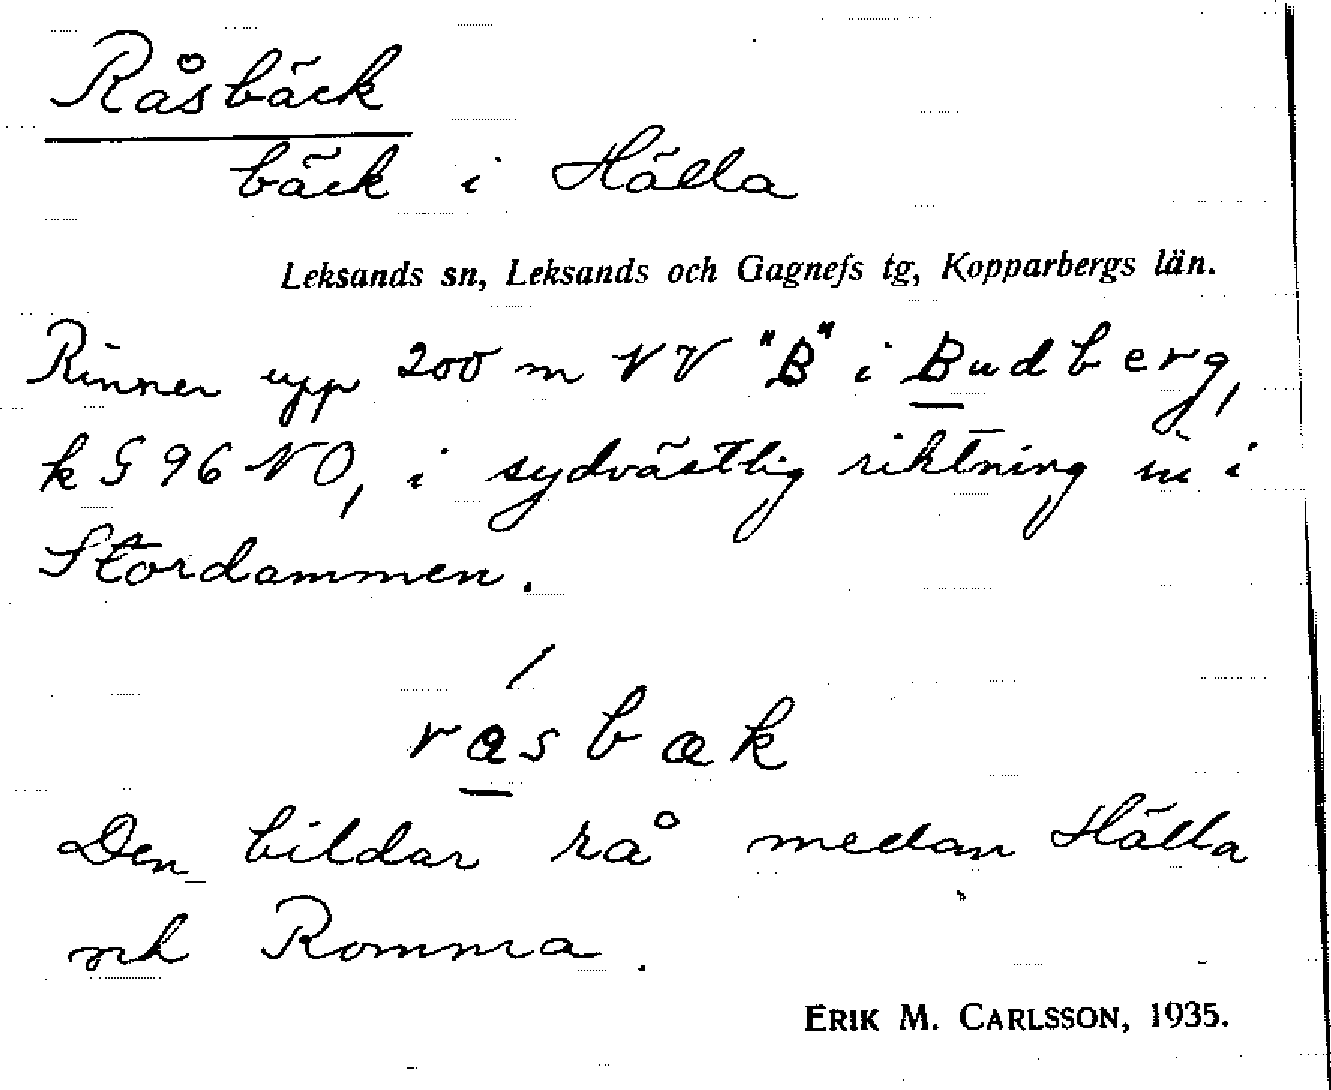 Råsbäck
bäck i Hälla
Leksands sn, Leksands och Gagnefs tg, Kopparbergs län.
Rinner upp 200 m NV "B" i Budberg,
k G 96 NO, i sydvästlig riktning ut i
Stordammen.
råsbæk
Den bildar rå medan Hälla
och Romma.
ERIK M. CARLSSON, 1935.